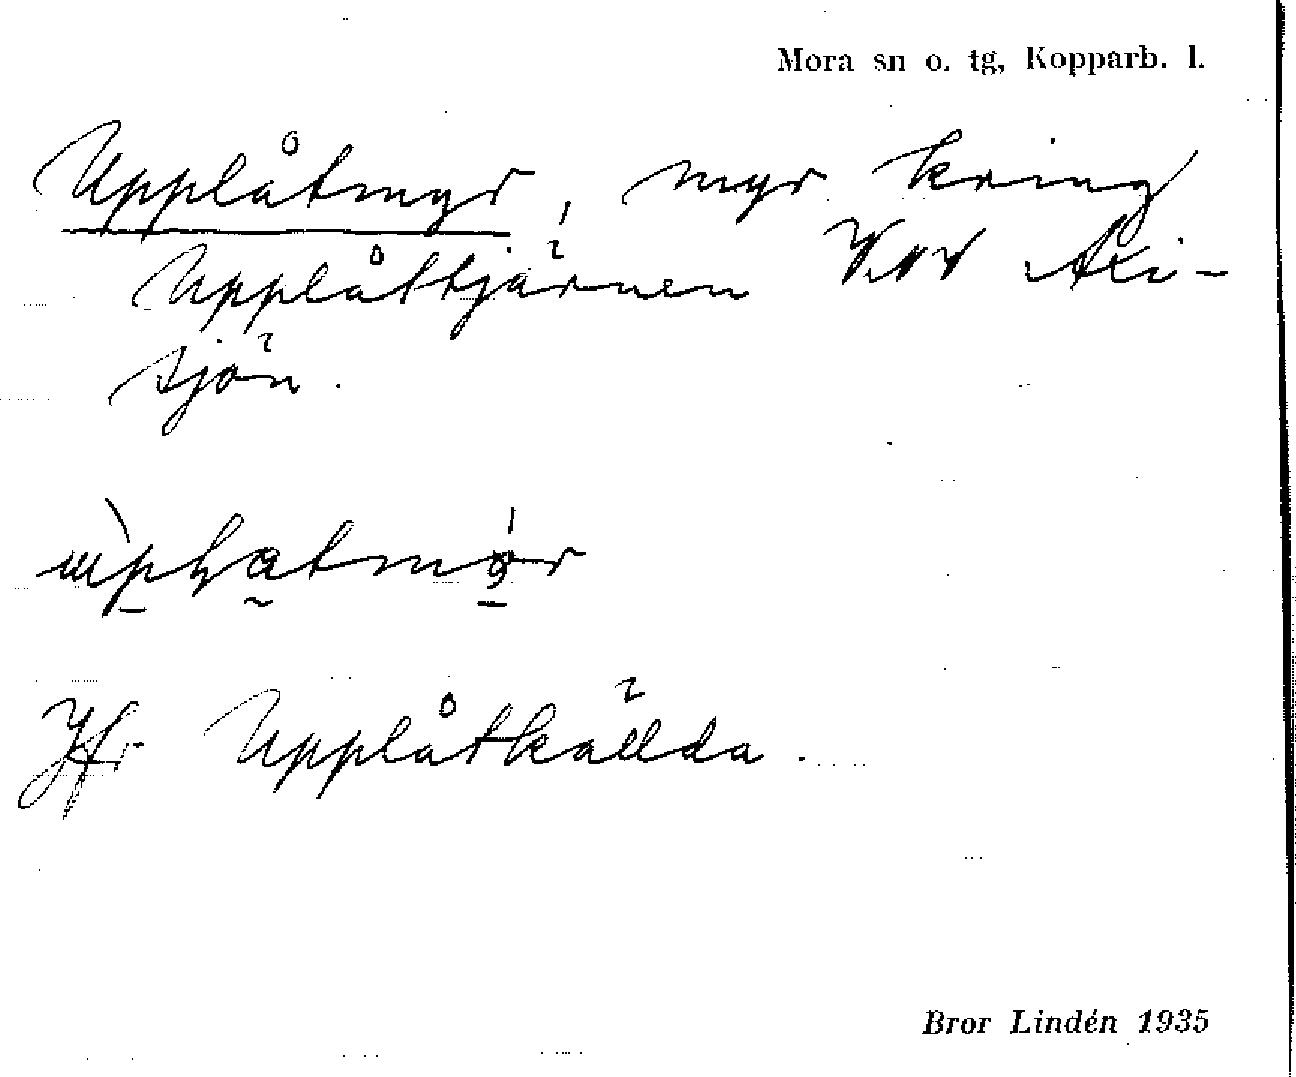 Mora sn o. tg, Kopparb. l.
Upplåtmyr, myr kring
Upplåttjärnen VNV
sjön.
Jfr Upplåtkällda.
Bror Lindén 1935